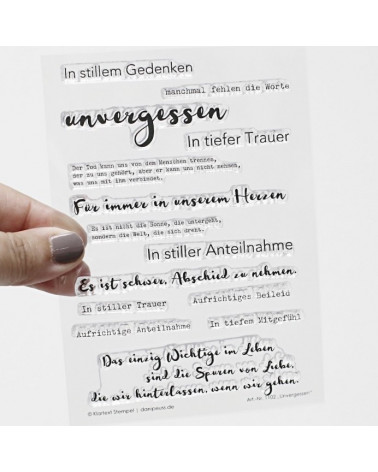 In stillem Gedenken
manchmal fehlen die Worte
unvergessen
In tiefer Trauer
Der Tod kann uns von dem Menschen trennen,
der zu uns gehört, aber er kann uns nicht nehmen,
was uns mit ihm verbindet.
Für immer in unserem Herzen
Es ist nicht die Sonne, die untergeht,
sondern die Welt, die sich dreht.
In stiller Anteilnahme
Es ist schwer, Abschied zu nehmen.
In stiller Trauer
Aufrichtiges Beileid
Aufrichtige Anteilnahme
In tiefem Mitgefühl
Das einzig Wichtige im Leben
sind die Spuren von Liebe,
die wir hinterlassen, wenn wir gehen.
© Klartext Stempel |
Art.-Nr. 1702 „Unvergessen"